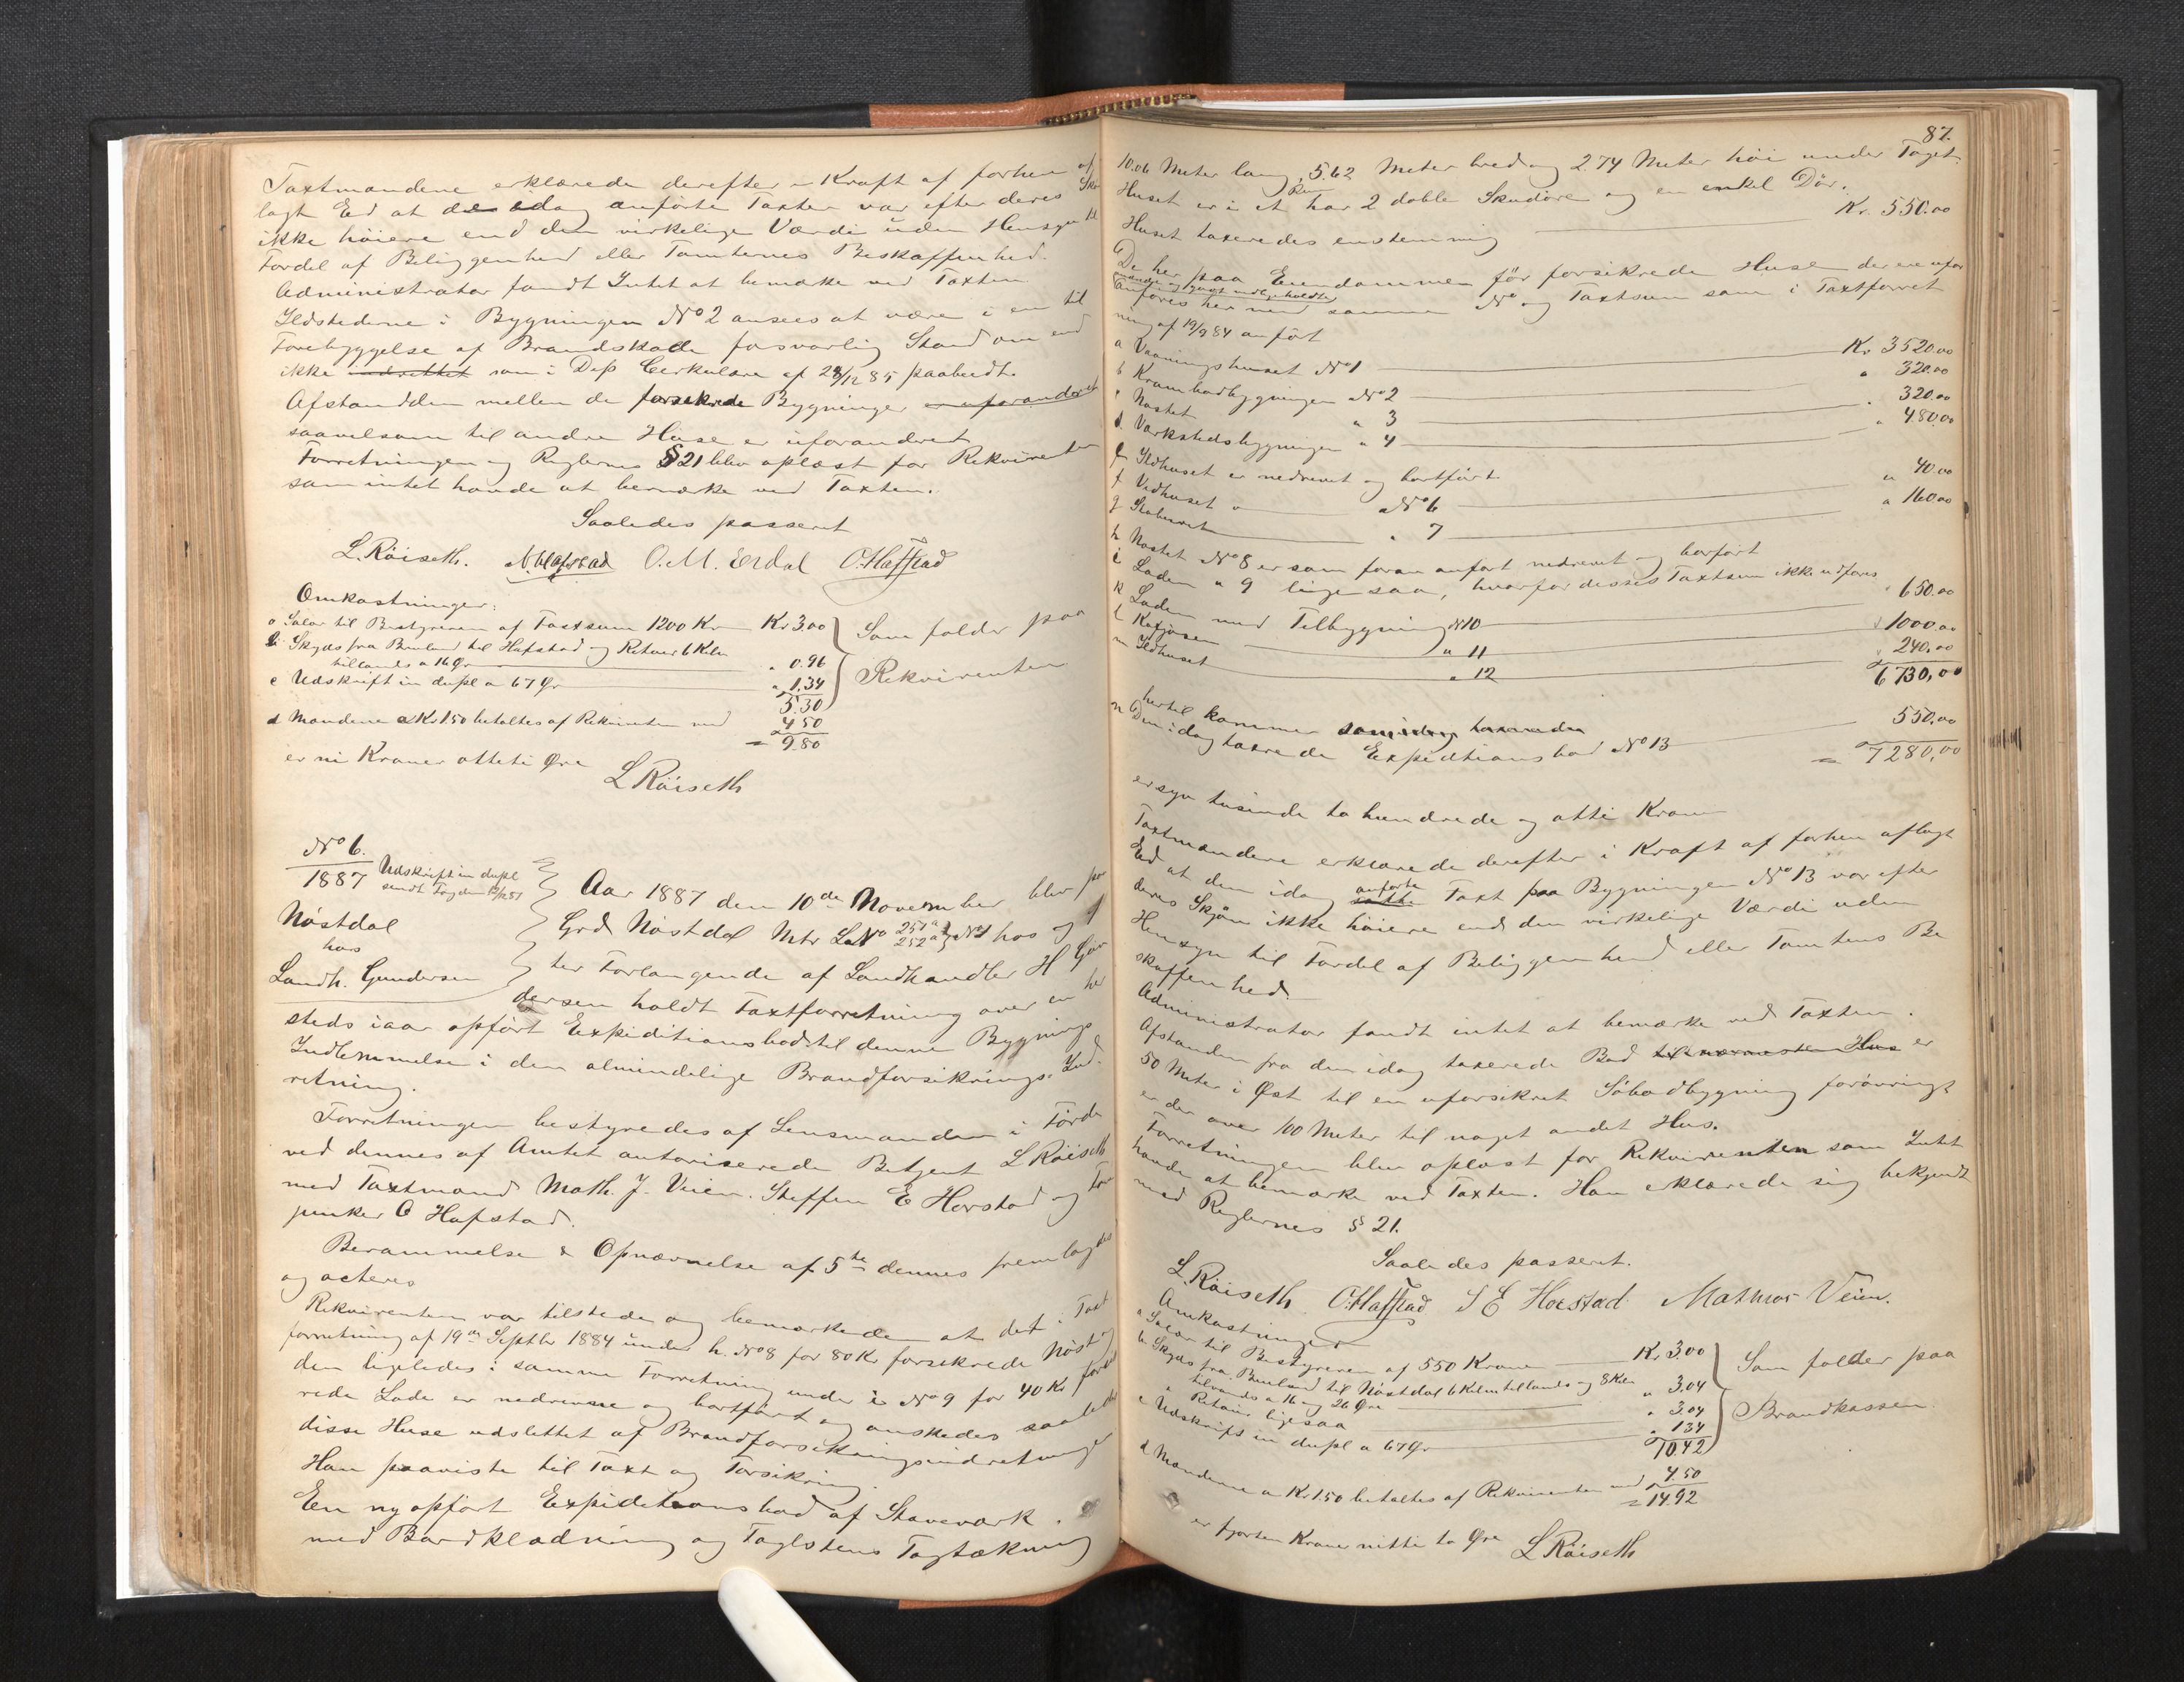 Taxtmændene erklærede derefter i Kraft af forhen af
lagt Ed at de idag anførte Taxter var efter deres Skj
ikke høiere end den virkelige Værdi uden Hensyn til
Fordel af Beliggenhed eller Tomternes Beskaffenhed.
Administrator fandt Intet at bemærke ved Taxten
Ildstederne i Bygningen No 2 ansees at være i en til
Forebyggelse af Brandskade forsvarlig Stand om end
ikke som i Deps Cirkulære af 28/12 85 paabudt.
Afstandden mellem de forsikrede Bygninger er uforandret
saavelsom til andre Huse er uforandret
Forretningen og Reglernes § 21 blev oplæst for Rekvirenten
som intet havde at bemærke ved Taxten.
Saaledes passeret
L. Röiseth. N. Hafstad O. M. Erdal O. Hafstad
Omkostninger:
a Salær til Bestyreren af Taxtsum 1200 Kr Kr 3.00
b Skyds fra Bruland til Hafstad og Retour 6 Kilm
tillands a 16 Ør " 0.96
c Udskrift in dupl a 67 Ør " 1.34
5.30
Som falder paa
Rekvirenten
d Mændene a Kr 1.50 betaltes af Rekvirenten med 4.50
= 9.80
er ni Kroner otteti Øre
L Röiseth
No 6.
1887
Udskrift in dupl
sendt Fogden
Nøstdal
hos
Landh. Gundersen
Aar 1887 den 10de November blev paa
Grd Nøstdal Mtr LNo 251 a 252 a No 1 hos og ef
ter Forlangende af Landhandler H Gun
dersen holdt Taxtforretning over en her
steds iaar opført Expeditionsbod til denne Bygnings
Indlemmelse i den almindelige Brandforsikrings-Ind-
retning.
Forretningen bestyredes af Lensmanden i Førde
ved dennes af Amtet autoriserede Betjent L Röiseth
med Taxtmænd Math. J. Veien. Steffen E Horstad og For
junker O Hafstad.
Berammelse & Opnævnelse af 5te dennes fremlagdes
og acteres
Rekvirenten var tilstede og bemærkede at det i Taxt
forretning af 19de Septbr 1884 under h. No 8 for 80 Kr forsikrede Nøst og
den ligeledes i samme Forretning under i No 9 for 40 Kr forsik
rede Lade er nedrevne og bortført og ønskedes saaledes
disse Huse udslettet af Brandforsikringsindretningen
Han paaviste til Taxt og Forsikring.
En ny opført Expeditionsbod af Stavværk
med Bordklædning og Taglstens Tagtækning
87.
10.06 Meter lang, 5.62 Meter bred og 2.74 Meter høi under Taget.
Huset er i et Rum har 2 doble Skudøre og en enkel Dør.
Huset taxeredes enstemmig Kr. 550.00
De her paa Eiendommen før forsikrede Huse der ere ufor
andre og godt vedligeholdte
anføres her med samme No og Taxtsum som i Taxtforret
ning af 19/9 84 anført
a Vaaningshuset No 1 Kr 3520.00
b Krambodbygningen No 2 " 320.00
c Nøstet " 3 " 320.00
d. Værkstedsbygningen " 4 " 480.00
e Ildhuset er nedrevet og bortført.
f Vedhuset " No 6 " 40.00
g Staburet " 7 " 160.00
h Nøstet No 8 er som foran anført nedrevet og borført
i Laden " 9 ligesaa, hvorfor desses Taxtsum ikke udføres
k Laden med Tilbygning No 10 " 650.00
l Kufjøsen " 11 " 1000.00
m Ildhuset " 12 " 240.00
6730,00
hertil kommer som idag taxeredes
n Den idag taxerede Expeditionsbod No 13 550.00
= 7280,00
er syv tusinde to hundrede og otti Kroner
Taxtmændene erklærede derefter i Kraft af forhen aflagt
Ed at den idag anførte Taxt paa Bygningen No 13 var efter
deres Skjøn ikke høiere end den virkelige Værdi uden
Hensyn til Fordel af Beliggenhed eller Tomtens Be
skaffenhed.
Administrator fandt intet at bemærke ved Taxten.
Afstanden fra den idag taxerede Bod til nærmeste Hus er
50 Meter i Øst til en uforsikret Søbodbygning forøvrigt
er der over 100 Meter til noget andet Hus.
Forretningen blev oplæst for Rekvirenten som Intet
havde at bemærke ved Taxten. Han erklærede sig bekjendt
med Reglernes § 21.
Saaledes passeret.
L. Röiseth O. Hafstad S E Horstad Mathias Veien.
Omkostninger
a Salær til Bestyreren af 550 Kroner Kr. 3.00
b Skyds fra Bruland til Nøstdal 6 Kilm tillands og 8 Kilm
tilvands a 16 og 26 Øre " 3.04
Retour ligesaa " 3.04
c Udskrift in dupl a 67 Ør " 1.34
10.42
Som falder paa
Brandkassen
d Mændene a Kr 1.50 betaltes af Rekvirenten med 4.50
= 14.92
er fjorten Kroner nitti to Øre L Röiseth